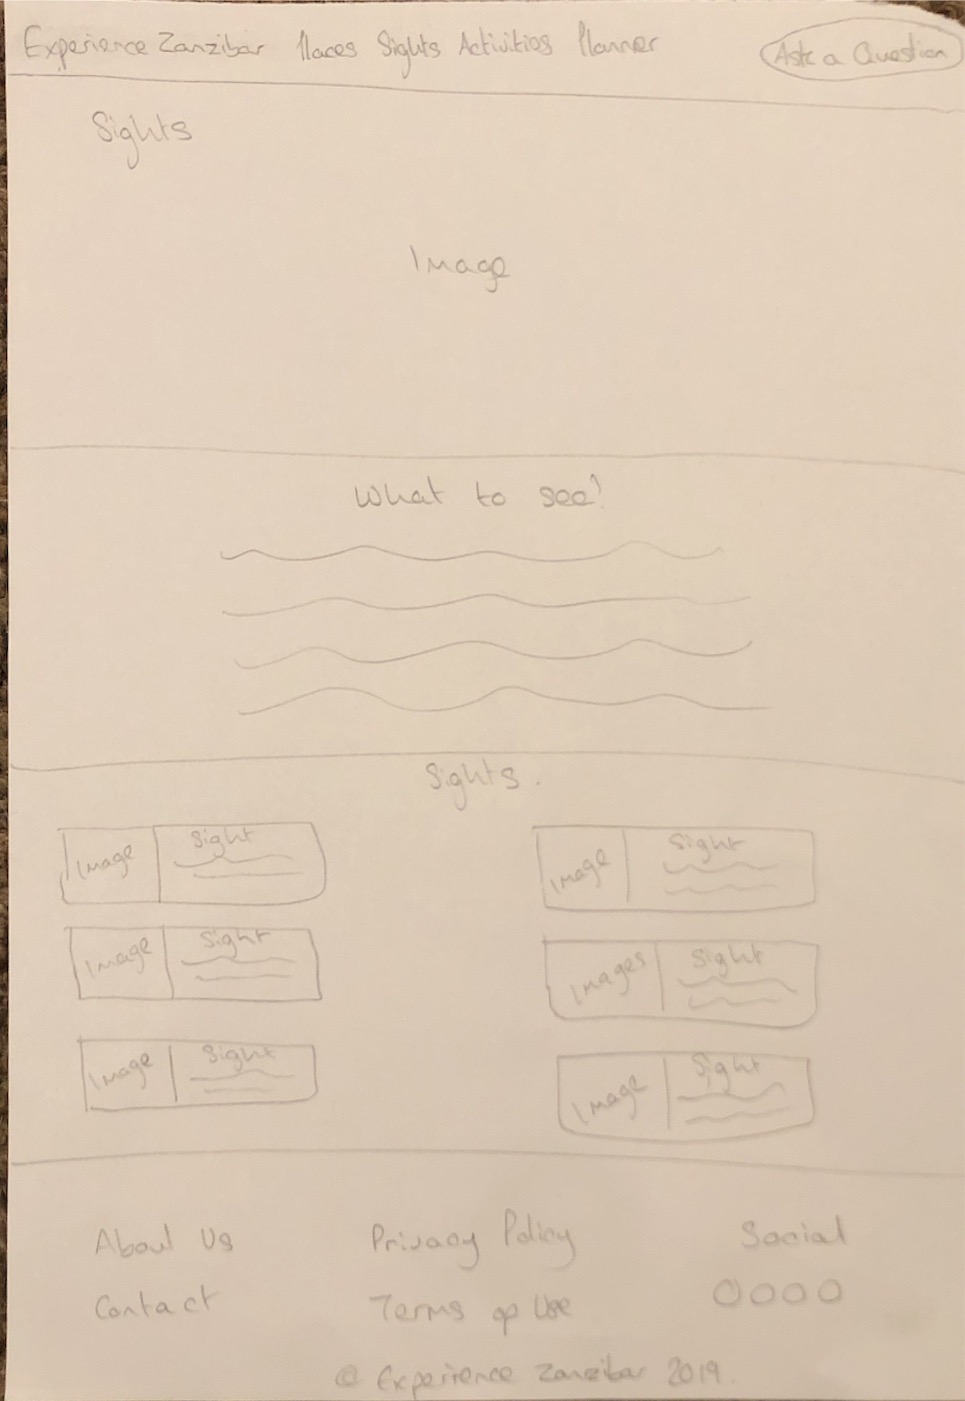 Experience Zanzibar Places Sights Activities Planner Ask a Question
Sights
Image
What to see!
Sights.
Image Sight
Image Sight
Image Sight
Images Sight
Image Sight
Image Sight
About Us Privacy Policy Social
Contact Terms of Use
© Experience Zanzibar 2019.